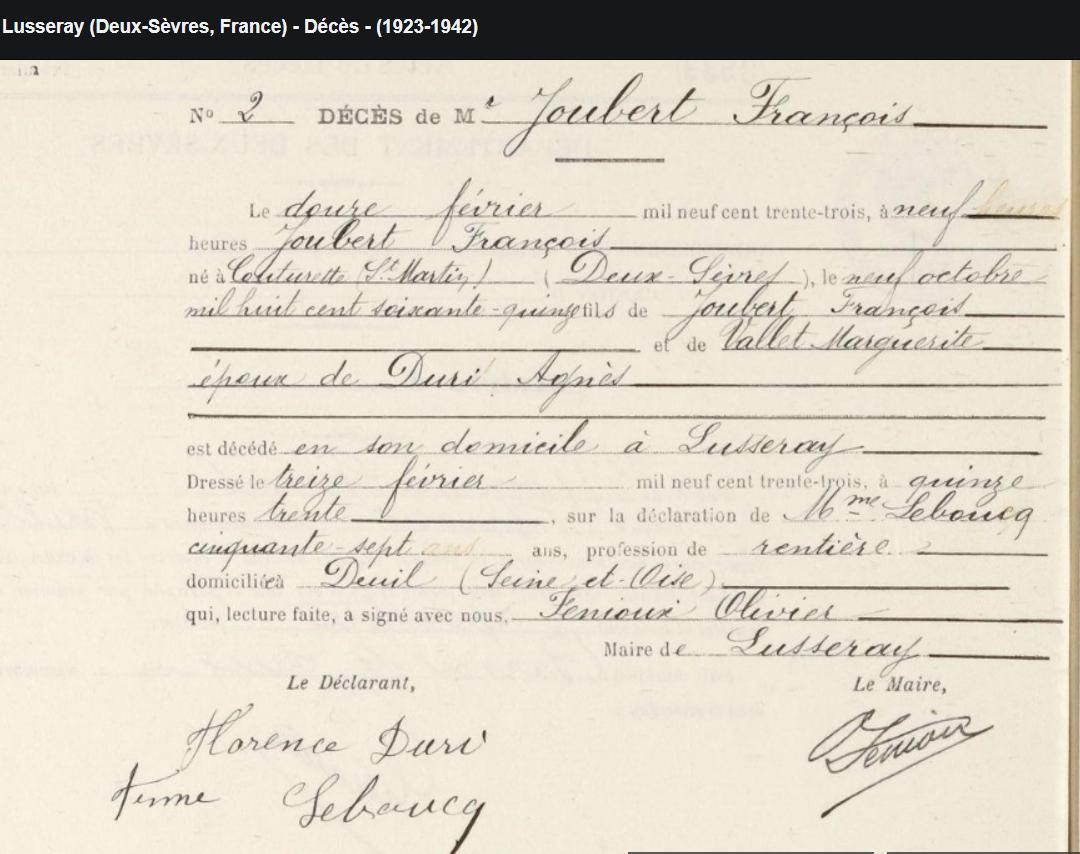 Lusseray (Deux-Sèvres, France) - Décès - (1923-1942)
No 2 DÉCÈS de Mr Joubert François
Le douze février mil neuf cent trente-trois, à neuf heures
heures Joubert François
né à Couturette (St Martin) (Deux-Sèvres), le neuf octobre
mil huit cent soixante-quinze fils de Joubert François
et de Vallet Marguerite
époux de Duri Agnès
est décédé en son domicile à Lusseray
Dressé le treize février mil neuf cent trente-trois, à quinze
heures trente, sur la déclaration de Mme Leboucq
cinquante-sept ans ans, profession de rentière
domiciliée à Deuil (Seine-et-Oise)
qui, lecture faite, a signé avec nous, Fenioux Olivier
Maire de Lusseray
Le Déclarant, Le Maire,
Florence Duri OFenioux
femme Leboucq